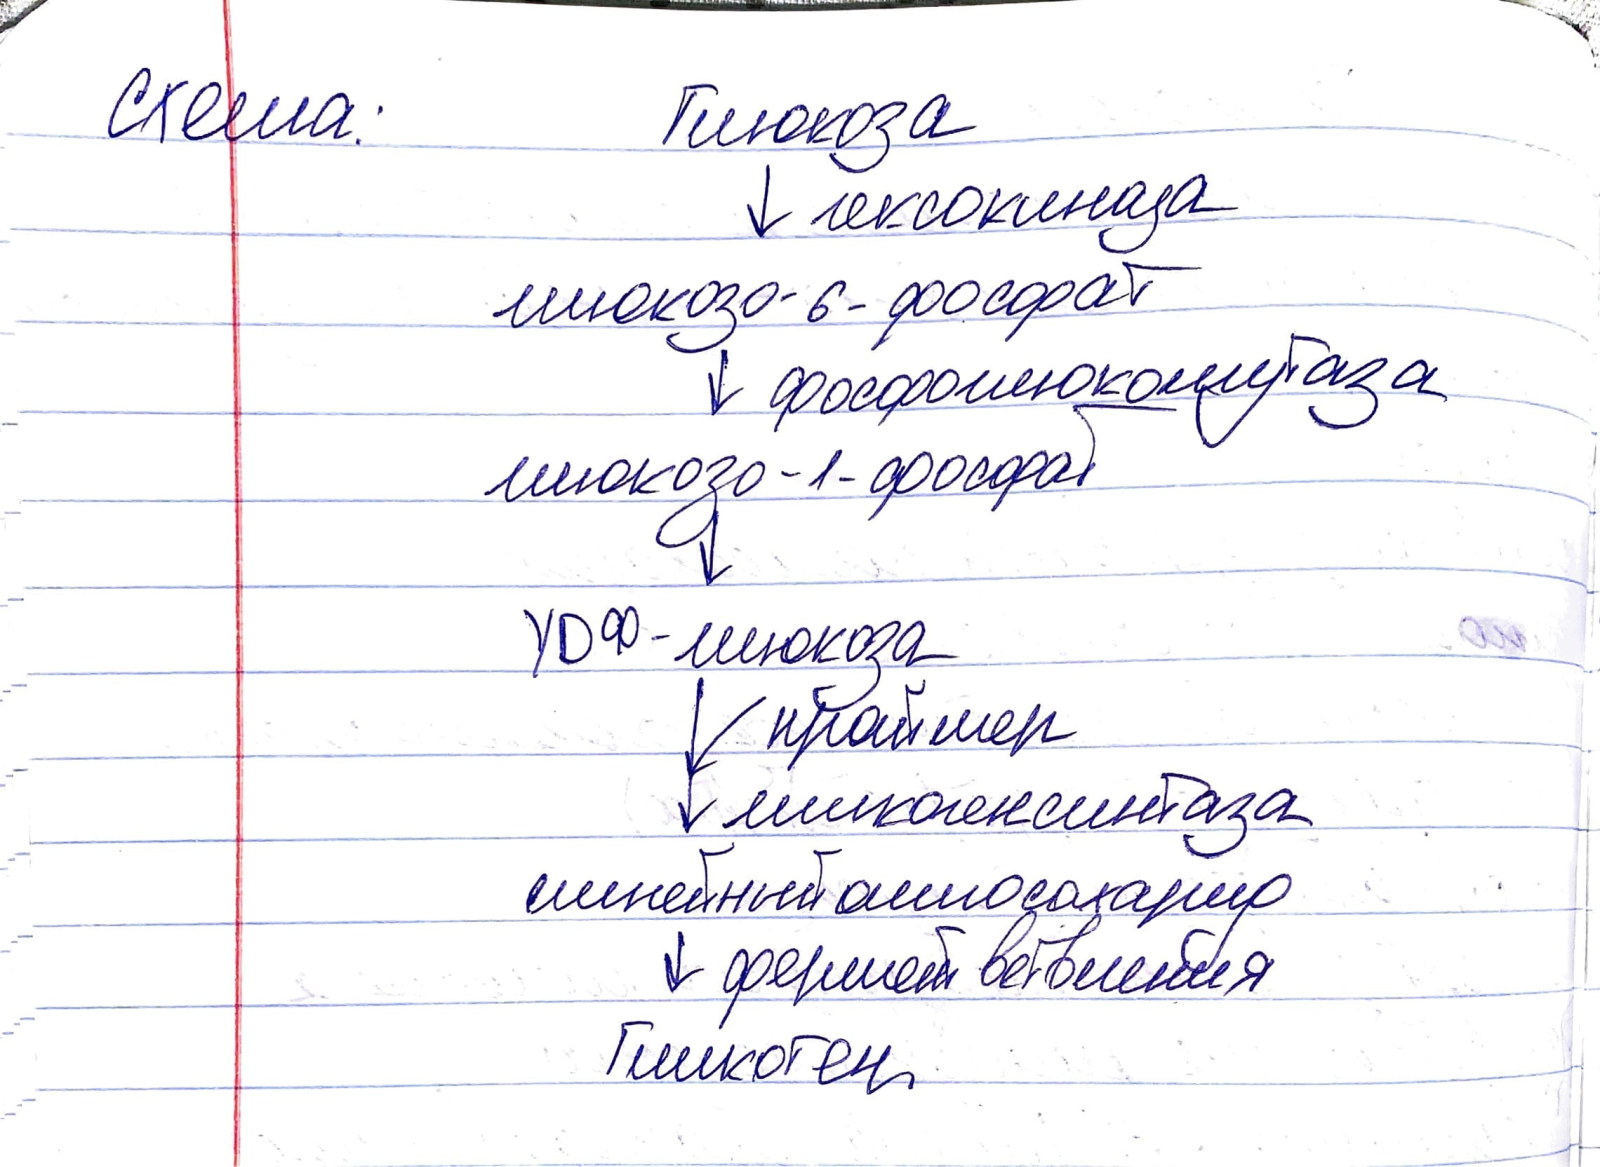 Схема: Глюкоза
↓ гексокиназа
глюкозо-6-фосфат
↓ фосфоглюкомутаза
глюкозо-1-фосфат
↓
УDФ-глюкоза
праймер
↓ гликогенсинтаза
линейный олигосахарид
↓ фермент ветвления
Гликоген